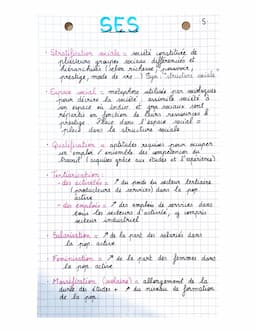 SES
5
• Stratification sociale = société constituée de
plusieurs groupes sociaux différenciés et
hiérarchisés (selon richesse, pouvoir,
prestige, mode de vie...) Syn: "structure sociale"
• Espace social = métaphore utilisée par sociologues
pour décrire la société : assimile société à
un espace où indiv. et grp sociaux sont
répartis en fonction de leurs ressources &
prestige. Place dans l'espace social =
place dans la structure sociale
• Qualification = aptitudes requises pour occuper
un emploi / ensemble des compétences du
travail (acquises grâce aux études et l'expérience)
• Tertiarisation :
- des activités = ↗ du poids du secteur tertiaire
(producteurs de services) dans la pop.
active
- des emplois = ↗ des emplois de services dans
tous les secteurs d'activité, y compris
secteur industriel
• Salarisation = ↗ de la part des salariés dans
la pop. active
• Féminisation = ↗ de la part des femmes dans
la pop. active
• Massification (scolaire) = allongement de la
durée des études + ↗ du niveau de formation
de la pop.